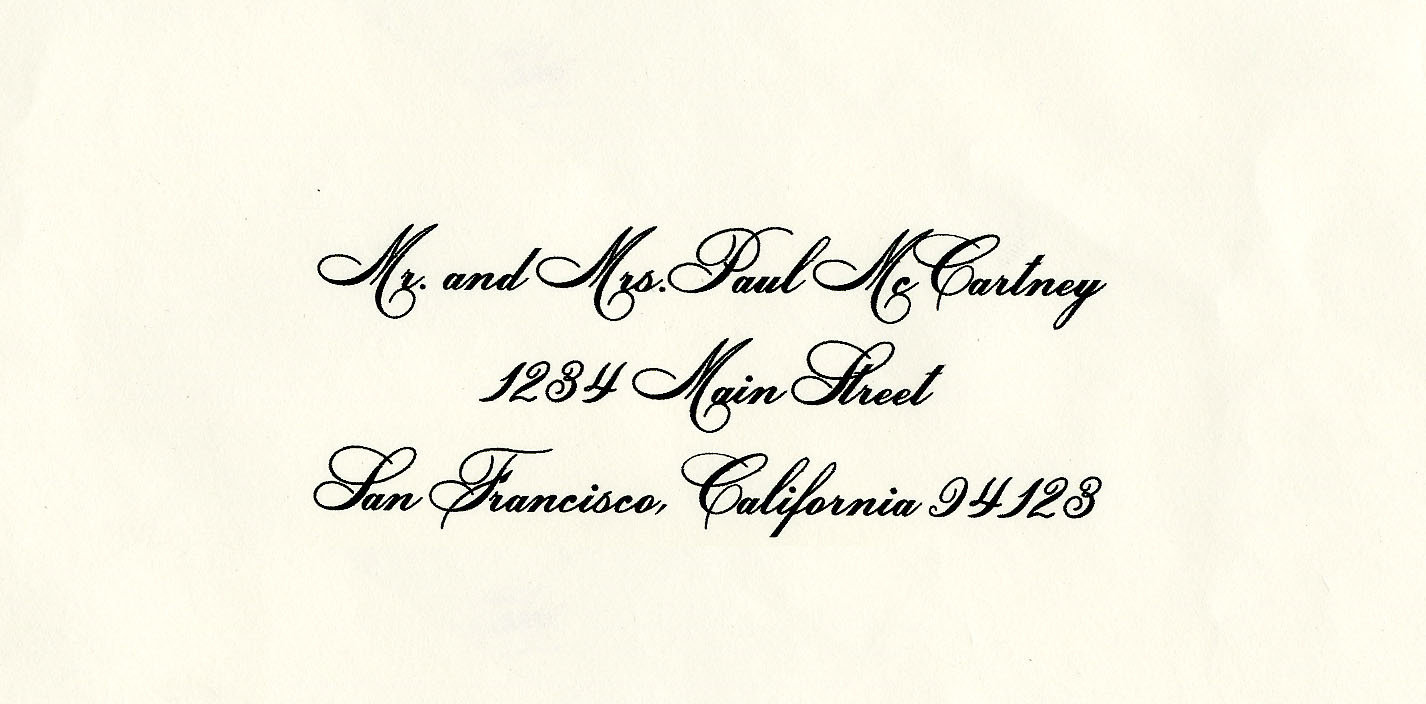 Mr. and Mrs. Paul McCartney
1234 Main Street
San Francisco, California 94123